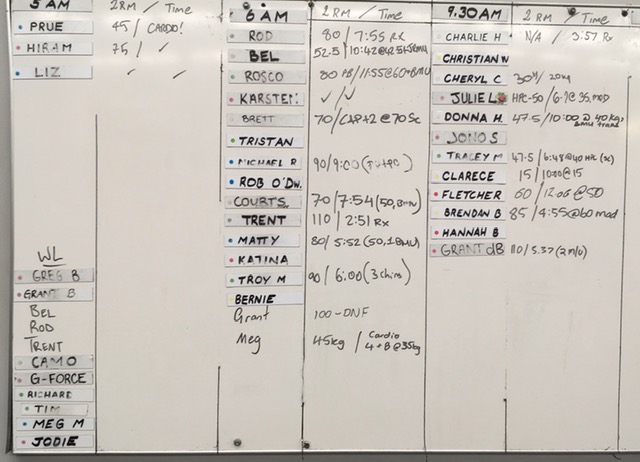 5 AM 2RM / Time
PRUE 45 / CARDIO!
HIRAM 75 / ✓
LIZ ✓ ✓
WL
GREG B
GRANT B
BEL
ROD
TRENT
CAMO
G-FORCE
RICHARD
TIM
MEG M
JODIE
6 AM 2RM / Time
ROD 80 / 7:55 Rx
BEL 52.5 / 10:42@42.5
ROSCO 80 / 11:55@60
KARSTEN ✓ / ✓
BRETT 70 / CAP+2 @ 70 Sc
TRISTAN
MICHAEL R 90 / 9:00
ROB O'DW.
COURTS 70 / 7:54 (50,
TRENT 110 / 2:51 Rx
MATTY 80 / 5:52 (50,
KATINA
TROY M 90 / 6:00 (3 chins)
BERNIE
Grant 100-DNF
Meg 45kg / Cardio
4+8@35kg
9.30AM 2RM / Time
CHARLIE H N/A / 3:57 Rx
CHRISTIAN W
CHERYL C
JULIE L
DONNA H 47.5 / 10:00 @ 40kg,
JONO S
TRACEY M 47.5 / 6:48@40
CLARECE 15 / 10:00@15
FLETCHER 60 / 12:06 @50
BRENDAN B 85 / 4:55@60 mod
HANNAH B
GRANT dB 110 / 5:37 (2 m/u)